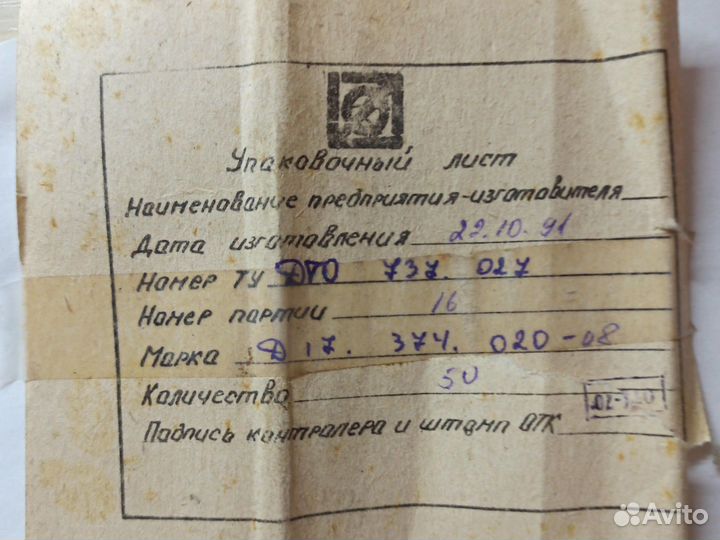 Упаковочный лист
Наименование предприятия-изготовителя
Дата изготовления 22.10.91
Номер ТУ ДТО 737. 027
Номер партии 16
Марка Д 17. 374. 020-08
Количество 50
Подпись контролера и штамп ОТК
Avito